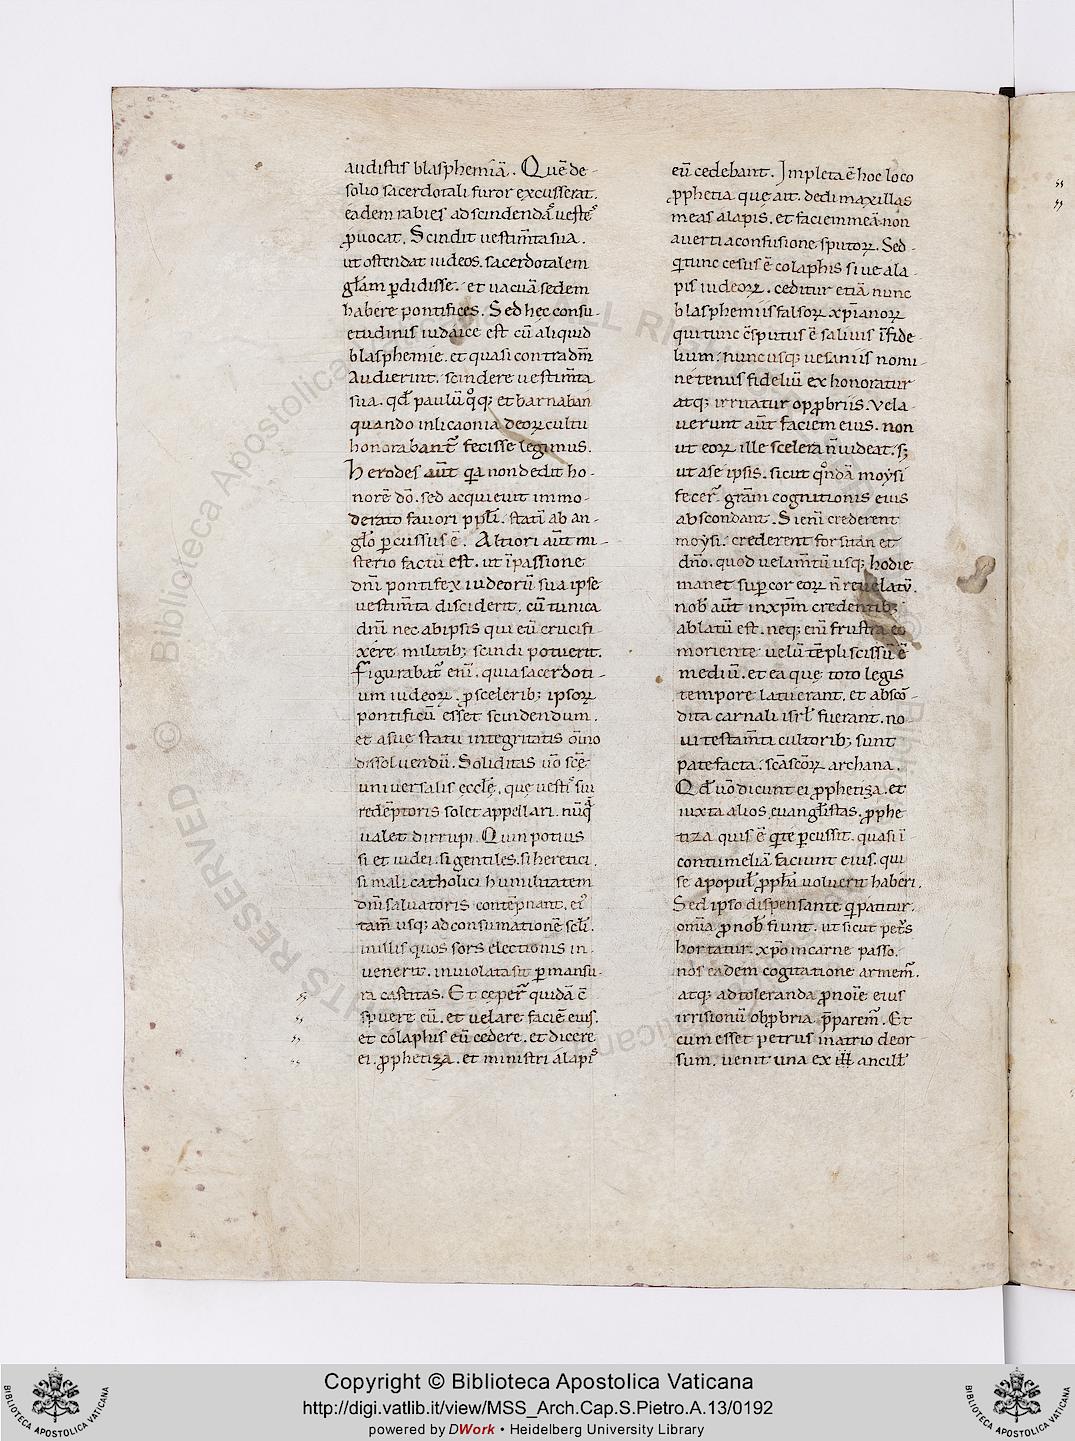 audistis blasphemiã. Quẽ de-
solio sacerdotali furor excusserat.
eadem rabies ad scindendã ueste᷒
ꝓuocat. Scindit uestim̃ta sua.
ut ostendat iudeos. sacerdotalem
gl̃am ꝑdidisse. et uacuã sedem
habere pontifices. Sed hęc consu-
etudinis iudaice est cũ aliquid
blasphemie. et quasi contra dm̃
Audierint. scindere uestim̃ta
sua. qđ paulũ qͦq; et barnaban
quando in licaonia deoꝝ cultu
honorabant᷒ fecisse legimus.
Herodes aut̃ qa non dedit ho-
norẽ dõ. sed acquieuit immo-
derato fauori ppl̃i. statĩ ab an-
gl̃o ꝑcussus ẽ. Altiori aut̃ mi-
sterio factũ est. ut ĩ passione
dnĩ pontifex iudeorũ sua ipse
uestim̃ta disciderit. cũ tunica
dnĩ nec ab ipsis qui eũ crucifi-
xere militib; scindi potuerit.
Figurabat᷒ enĩ. quia sacerdoti-
um iudeoꝝ. ꝓ sclerib; ipsoꝝ
pontificũ esset scindendum.
et a suę statu integritatis om̃o
dissoluendũ. Soliditas uõ scẽ
uniuersalis eccl̃ę, quę uesti᷒ sui
redẽptoris solet appellari. nũq̃
ualet dirrupi. Quin potius
si et iudei. si gentiles. si heretici.
si mali catholici humilitatem
dnĩ saluatoris contẽpnant. ei᷒
tam̃ usq; ad consumationẽ scl̃i.
in illis quos sors electionis in-
uenerit. inuiolata sit ꝑmansu-
ra castitas. Et cęper̃ quidã ẽ
spuere eũ. et uelare faciẽ eius.
et colaphis eũ cedere. et dicere
ei. ꝓphetiza. et ministri alapi᷒
eũ cedebant. Impleta ẽ hoc loco
ꝓphetia quę ait. dedi maxillas
meas alapis. et faciem meã non
auerti a confusione sputoꝝ. Sed-
q̃ tunc cesus ẽ colaphis siue ala-
pis iudeoꝝ. ceditur etiã nunc
blasphemiis falsoꝝ xp̃ianoꝝ
qui tunc c̃sputus ẽ saliuis ĩfide-
lium: nunc usq; uesaniis nomi-
ne tenus fideliũ exhonoratur
atq; irritatur opꝓbriis. Vela-
uerunt aut̃ faciem eius. non
ut eoꝝ ille scelera ñ uideat. s;
ut a se ipsis. sicut qͦndã moẏsi
fecer̃. gr̃am cognitionis eius
abscondant. Si enĩ crederent
moẏsi. crederent forsitan et
dño. quod uelam̃tũ usq; hodie
manet suꝑ cor eoꝝ ñ reuelatũ.
nob̃ aut̃ in xp̃m credentib;
ablatũ est. neq; enĩ frustra eo
moriente uelũ tẽpli scissũ ẽ
mediũ. et ea quę toto legis
tempore latuerant. et abscõ-
dita carnali isrl̃ fuerant. no
ui testam̃ti cultorib; sunt
patefacta: scãscõꝝ archana.
Qđ uõ dicunt ei ꝓphetiza. et
iuxta alios euangl̃istas. ꝓphe
tiza quis ẽ q te ꝑcussit. quasi ĩ
contumeliã faciunt eius. qui
se a popul̃ ꝓph̃a uoluerit haberi.
Sed ipso dispensante q̃ patitur.
om̃ia ꝓ nob̃ fiunt. ut sicut pet᷒s
hortatur. xp̃o in carne passo.
nos eadem cogitatione armem᷒.
atq; ad toleranda ꝓ noĩe eius
irrisionũ obꝓbria p̃parem᷒. Et
cum esset petrus in atrio deor
sum. uenit una ex ancill̃